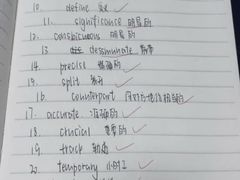 10. define 定义
11. significance 明显的
12. conspicuous 明显的
13. dessminate 散布
14. precise 精确的
15. split 劈开
16. counterpart
17. accurate 准确的
18. crucial 重要的
19. track 轨迹
20. temporary